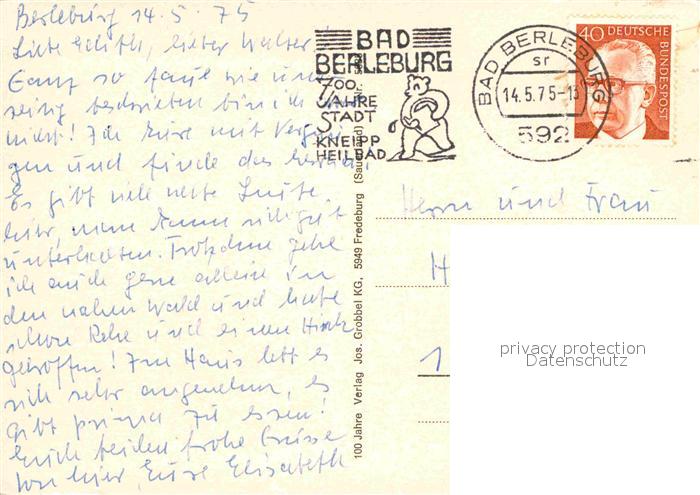 Berleburg 14.5.75
Liebe Edith, lieber Walter!
Ganz so faul wie
beschrieben bin ich
nicht! Ich kure mit Vergnü-
gen und finde das
Es gibt viele nette Leute
hier, man kann sich gut
unterhalten. Trotzdem gehe
ich auch gern allein in
den nahen Wald und habe
schon Rehe und einen Hirsch
getroffen! Im Haus lebt es
sich sehr angenehm, es
gibt prima zu essen!
Euch beiden frohe Grüsse
von hier, Eure Elisabeth
BAD
BERLEBURG
700
JAHRE
STADT
KNEIPP
HEILBAD
BAD BERLEBURG
sr
14.5.75-13
592
40 DEUTSCHE
BUNDESPOST
Herrn und Frau
H
1
100 Jahre Verlag Jos. Grobbel KG, 5949 Fredeburg (Sauerland)
privacy protection
Datenschutz